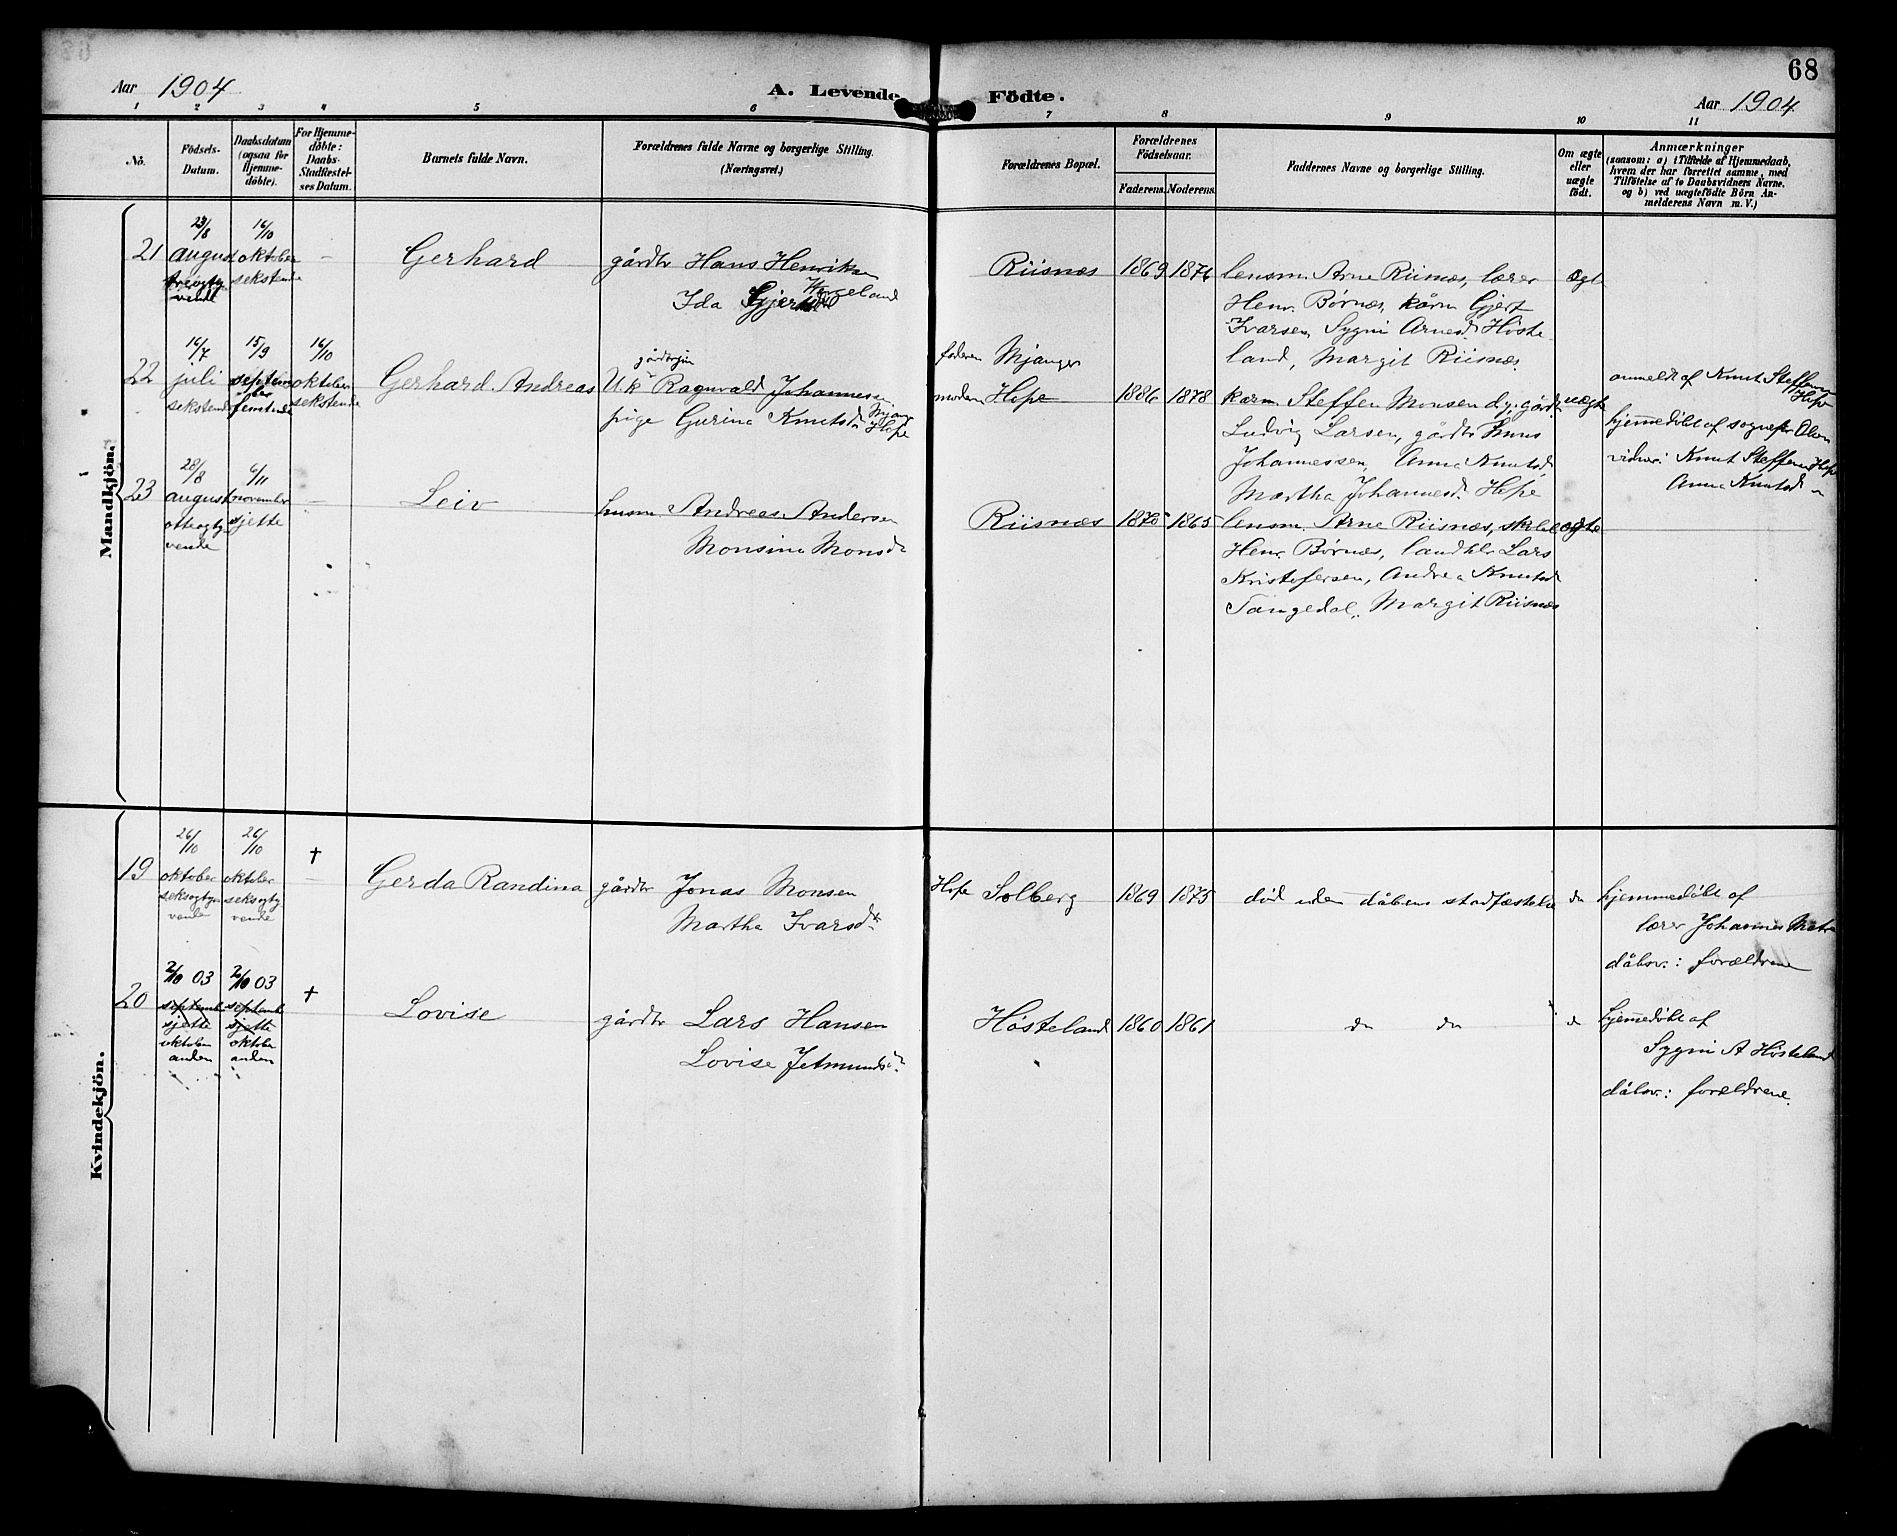 Aar 1904
A. Levende Födte.
68
Aar 1904
1 2 3 4 5 6 7 8 9 10 11
No.
Födsels-
Datum.
Daabsdatum
(ogsaa for
Hjemme-
døbte).
For Hjemme-
döbte:
Daabs-
Stadfæstel-
ses Datum.
Barnets fulde Navn.
Forældrenes fulde Navne og borgerlige Stilling.
(Næringsvei.)
Forældrenes Bopæl.
Forældrenes
Födselsaar.
Faderens. Moderens.
Faddernes Navne og borgerlige Stilling.
Om ægte
eller
uægte
födt.
Anmærkninger
(saasom: a) i Tilfælde af Hjemmedaab,
hvem der har forrettet samme, med
Tilföielse af to Daabsvidners Navne,
og b) ved uægtefödte Börn An-
melderens Navn m. V.)
Mandkjön.
21
23/8
august
treogty
vende
16/10
oktober
sekstende
–
Gerhard
gårdbr Hans Henriksen
Ida
Riisnæs
1869 1876
lensm. Arne Riisnæs, lærer
Henr. Børnæs, kårm Gjert
Ivarsen, Sygni Arnesd. Høste
land, Margit Riisnæs.
ægte
22
16/7
juli
sekstende
15/9
septem
ber
femtende
16/10
oktober
sekstende
Gerhard Andreas
U.k. Ragnvald Johannessen
Mjang
pige Gurina Knutsd. Hope
faderen Mjanger
moderen Hope
1886 1878
kårm Steffen Monsen, gårdbr
Ludvig Larsen, gårdbr
Johannessen, Anna Knutsd.
Martha Johannesd. Hope
uægte
anmeldt af Knut Steffensen
Hope
hjemmedøbt af sognepr Olsen
vidner: Knut Steffensen Hope
Anna Knutsd "
23
28/8
august
otteogty
vende
6/11
november
sjette
–
Leiv
husm Andreas Andersen
Monsine Monsdr
Riisnæs
1870 1865
lensm. Arne Riisnæs,
Henr. Børnæs, landhdlr Lars
Kristofersen, Andrea Knutsd
Tangedal, Margit Riisnæs
ægte
Kvindekjön.
19
26/10
oktober
seksogty
vende
26/10
oktober
seksogty
vende
†
–
Gerda Randina
gårdbr Jonas Monsen
Martha Ivarsdr
Hope Solberg
1869 1875
død uden dåbens stadfæstelse
do
hjemmedøbt af
lærer Johannes Matre
dåbsv.: forældrene
20
2/10 03
september
sjette
oktober
anden
2/10 03
september
sjette
oktober
anden
†
Lovise
gårdbr Lars Hansen
Lovise Jetmundsdr
Høsteland
1860 1861
do do
do
hjemmedøbt af
Sygni A Høsteland
dåbsv.: forældrene.